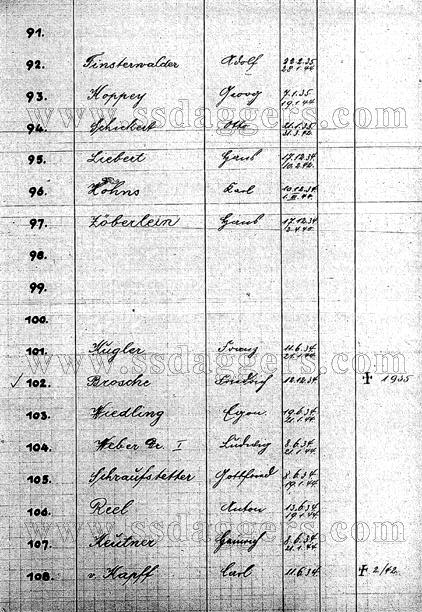 91.
92. Finsterwalder Adolf 22.2.35 28.1.44
93. Koppey Georg 7.1.35 19.1.44
www.ssdaggers.com
94. Schickert Otto 21.1.35 21.3.42.
95. Liebert Hans 17.12.34 10.2.42.
96. Höhns Karl 10.12.34
97. Zöberlein Hans 17.12.34 12.4.40.
www.ssdaggers.com
98.
99.
100.
101. Kugler Franz 11.6.34. 21.1.44.
www.ssdaggers.com
✓ 102. Brosche Friedrich 12.12.34 ✝ 1935
103. Wiedling Egon. 19.6.34 21.1.44.
104. Weber Dr. I Ludwig 8.6.34 21.1.44.
105. Schraufstetter Gottfried 8.6.34 19.1.44.
106. Reel Anton 13.6.34 19.1.44.
www.ssdaggers.com
107. Keutner Heinrich 8.6.34 21.1.44.
108. v. Kapff Carl 11.6.34 ✝ 2/42.